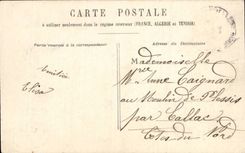 CARTE POSTALE
à utiliser seulement dans le régime intérieur (FRANCE, ALGÉRIE et TUNISIE)
Partie réservée à la correspondance
Adresse du Destinataire
Mademoiselle
Anne
au Moulin du Plessis
par Callac
Côtes du Nord